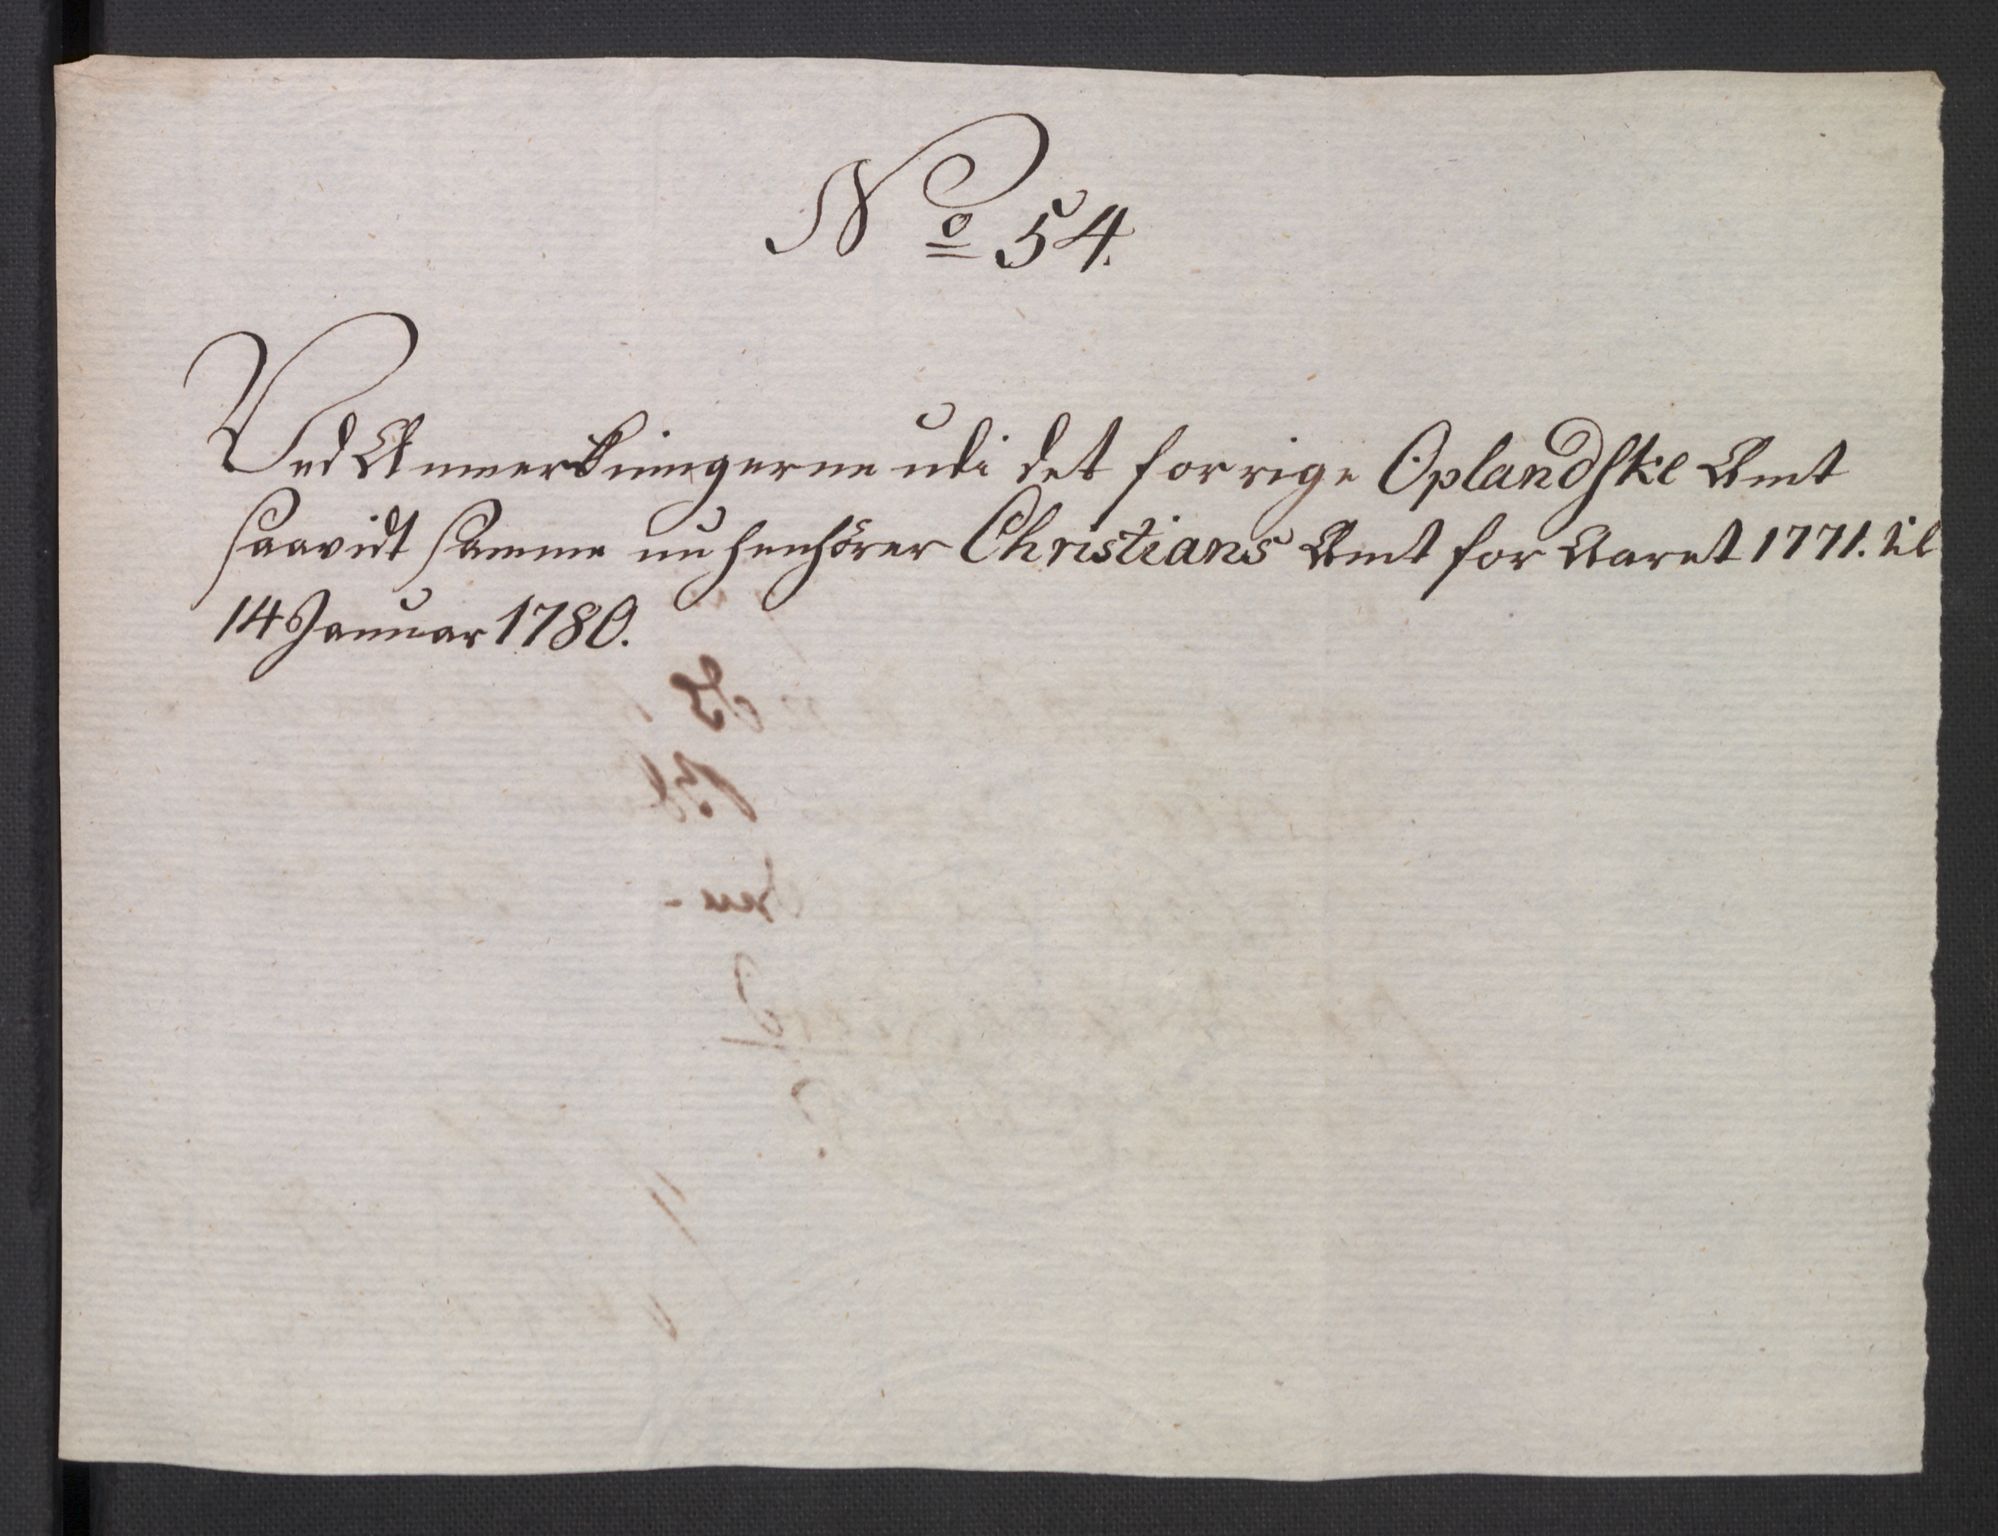 No 54.
Ved Anmerkningerne udi det forrige Oplandske Amt
saavidt samme nu henhörer Christians Amt for Aaret 1771. til
14 Januar 1780.